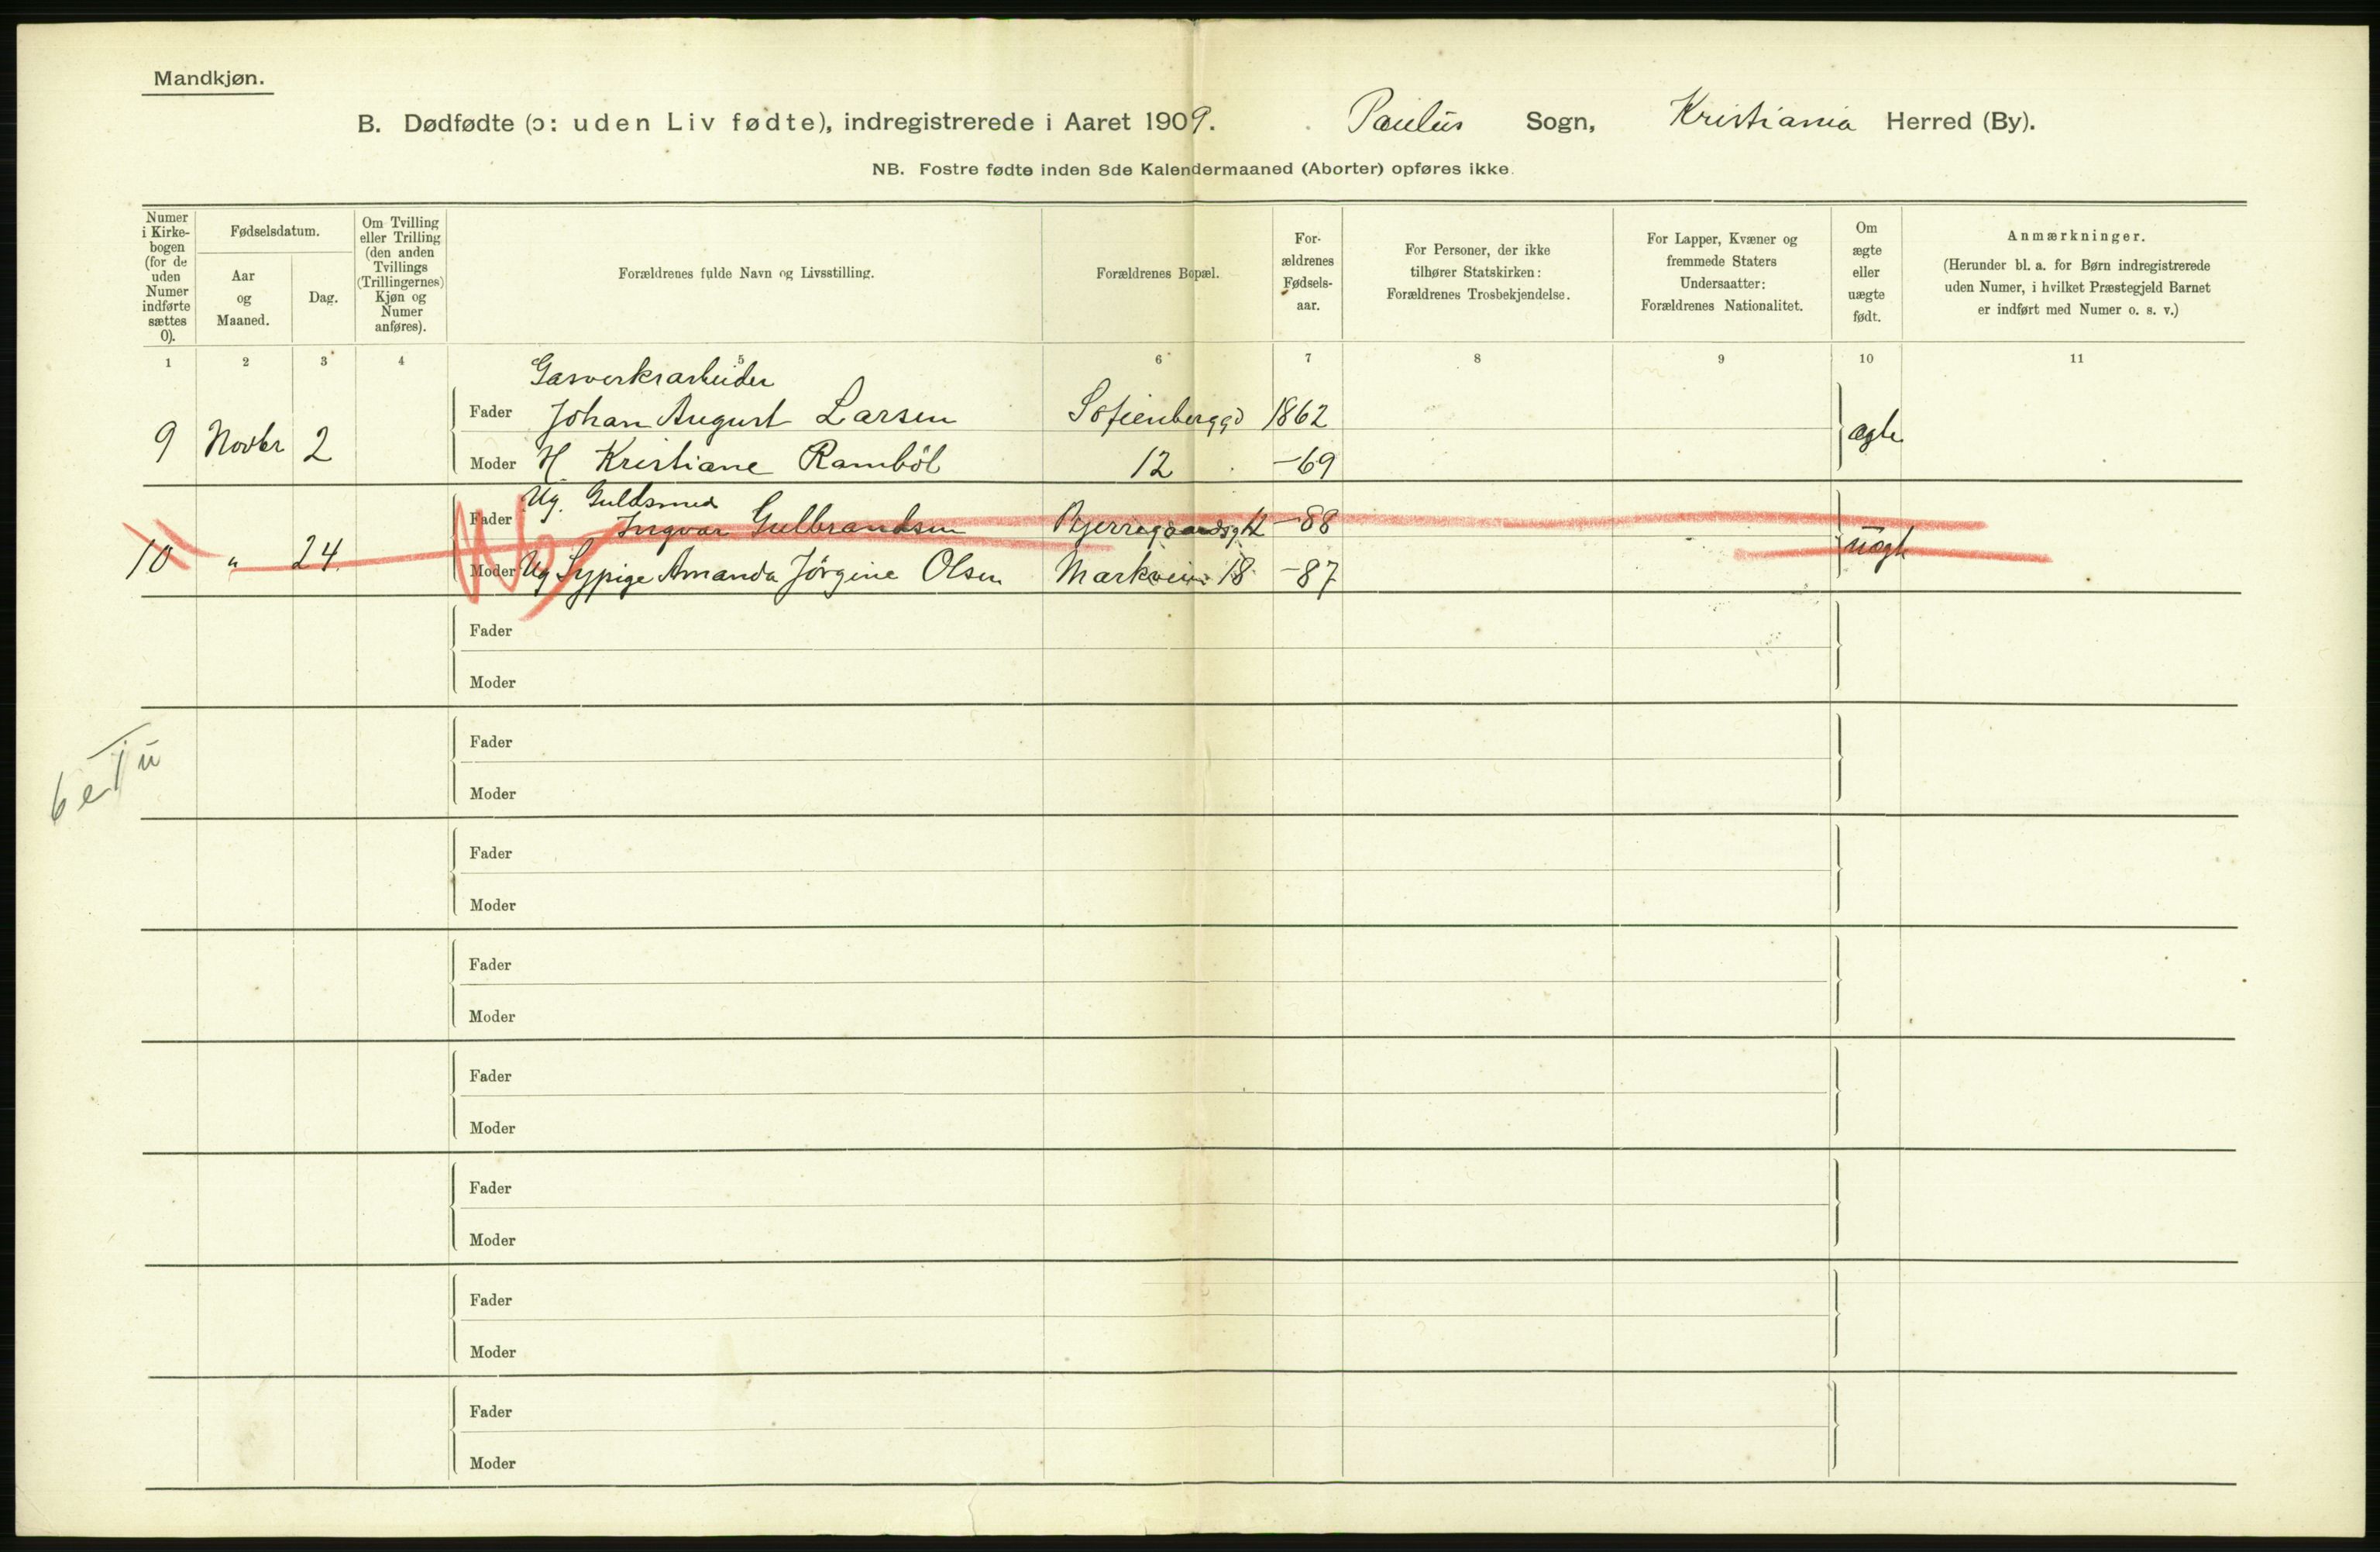 Mandkjøn.
B. Dødfødte (ɔ: uden Liv fødte), indregistrerede i Aaret 1909. Paulus Sogn, Kristiania Herred (By).
NB. Fostre fødte inden 8de Kalendermaaned (Aborter) opføres ikke.
Numer i Kirkebogen (for de uden Numer indførte sættes 0).
Fødselsdatum.
Aar og Maaned.
Dag.
Om Tvilling eller Trilling (den anden Tvillings (Trillingernes) Kjøn og Numer anføres).
Forældrenes fulde Navn og Livsstilling.
Forældrenes Bopæl.
Forældrenes Fødselsaar.
For Personer, der ikke tilhører Statskirken: Forældrenes Trosbekjendelse.
For Lapper, Kvæner og fremmede Staters Undersaatter: Forældrenes Nationalitet.
Om ægte eller uægte født.
Anmærkninger.
(Herunder bl. a. for Børn indregistrerede uden Numer, i hvilket Præstegjeld Barnet er indført med Numer o. s. v.)
1 2 3 4 5 6 7 8 9 10 11
Gasverksarbeider
Fader Johan August Larsen Sofienberggd 1862
9 Novbr 2 ægte
Moder H Kristiane Ramböl 12 -69
Ug. Guldsmed
Fader Ingvar Gulbrandsen Bjerregaardsgt 12 -88
10 " 24 uægte
Moder Ug Sypige Amanda Jörgine Olsen Markvein 18 -87
Fader
Moder
Fader
Moder
6 e 1 u
Fader
Moder
Fader
Moder
Fader
Moder
Fader
Moder
Fader
Moder
Fader
Moder